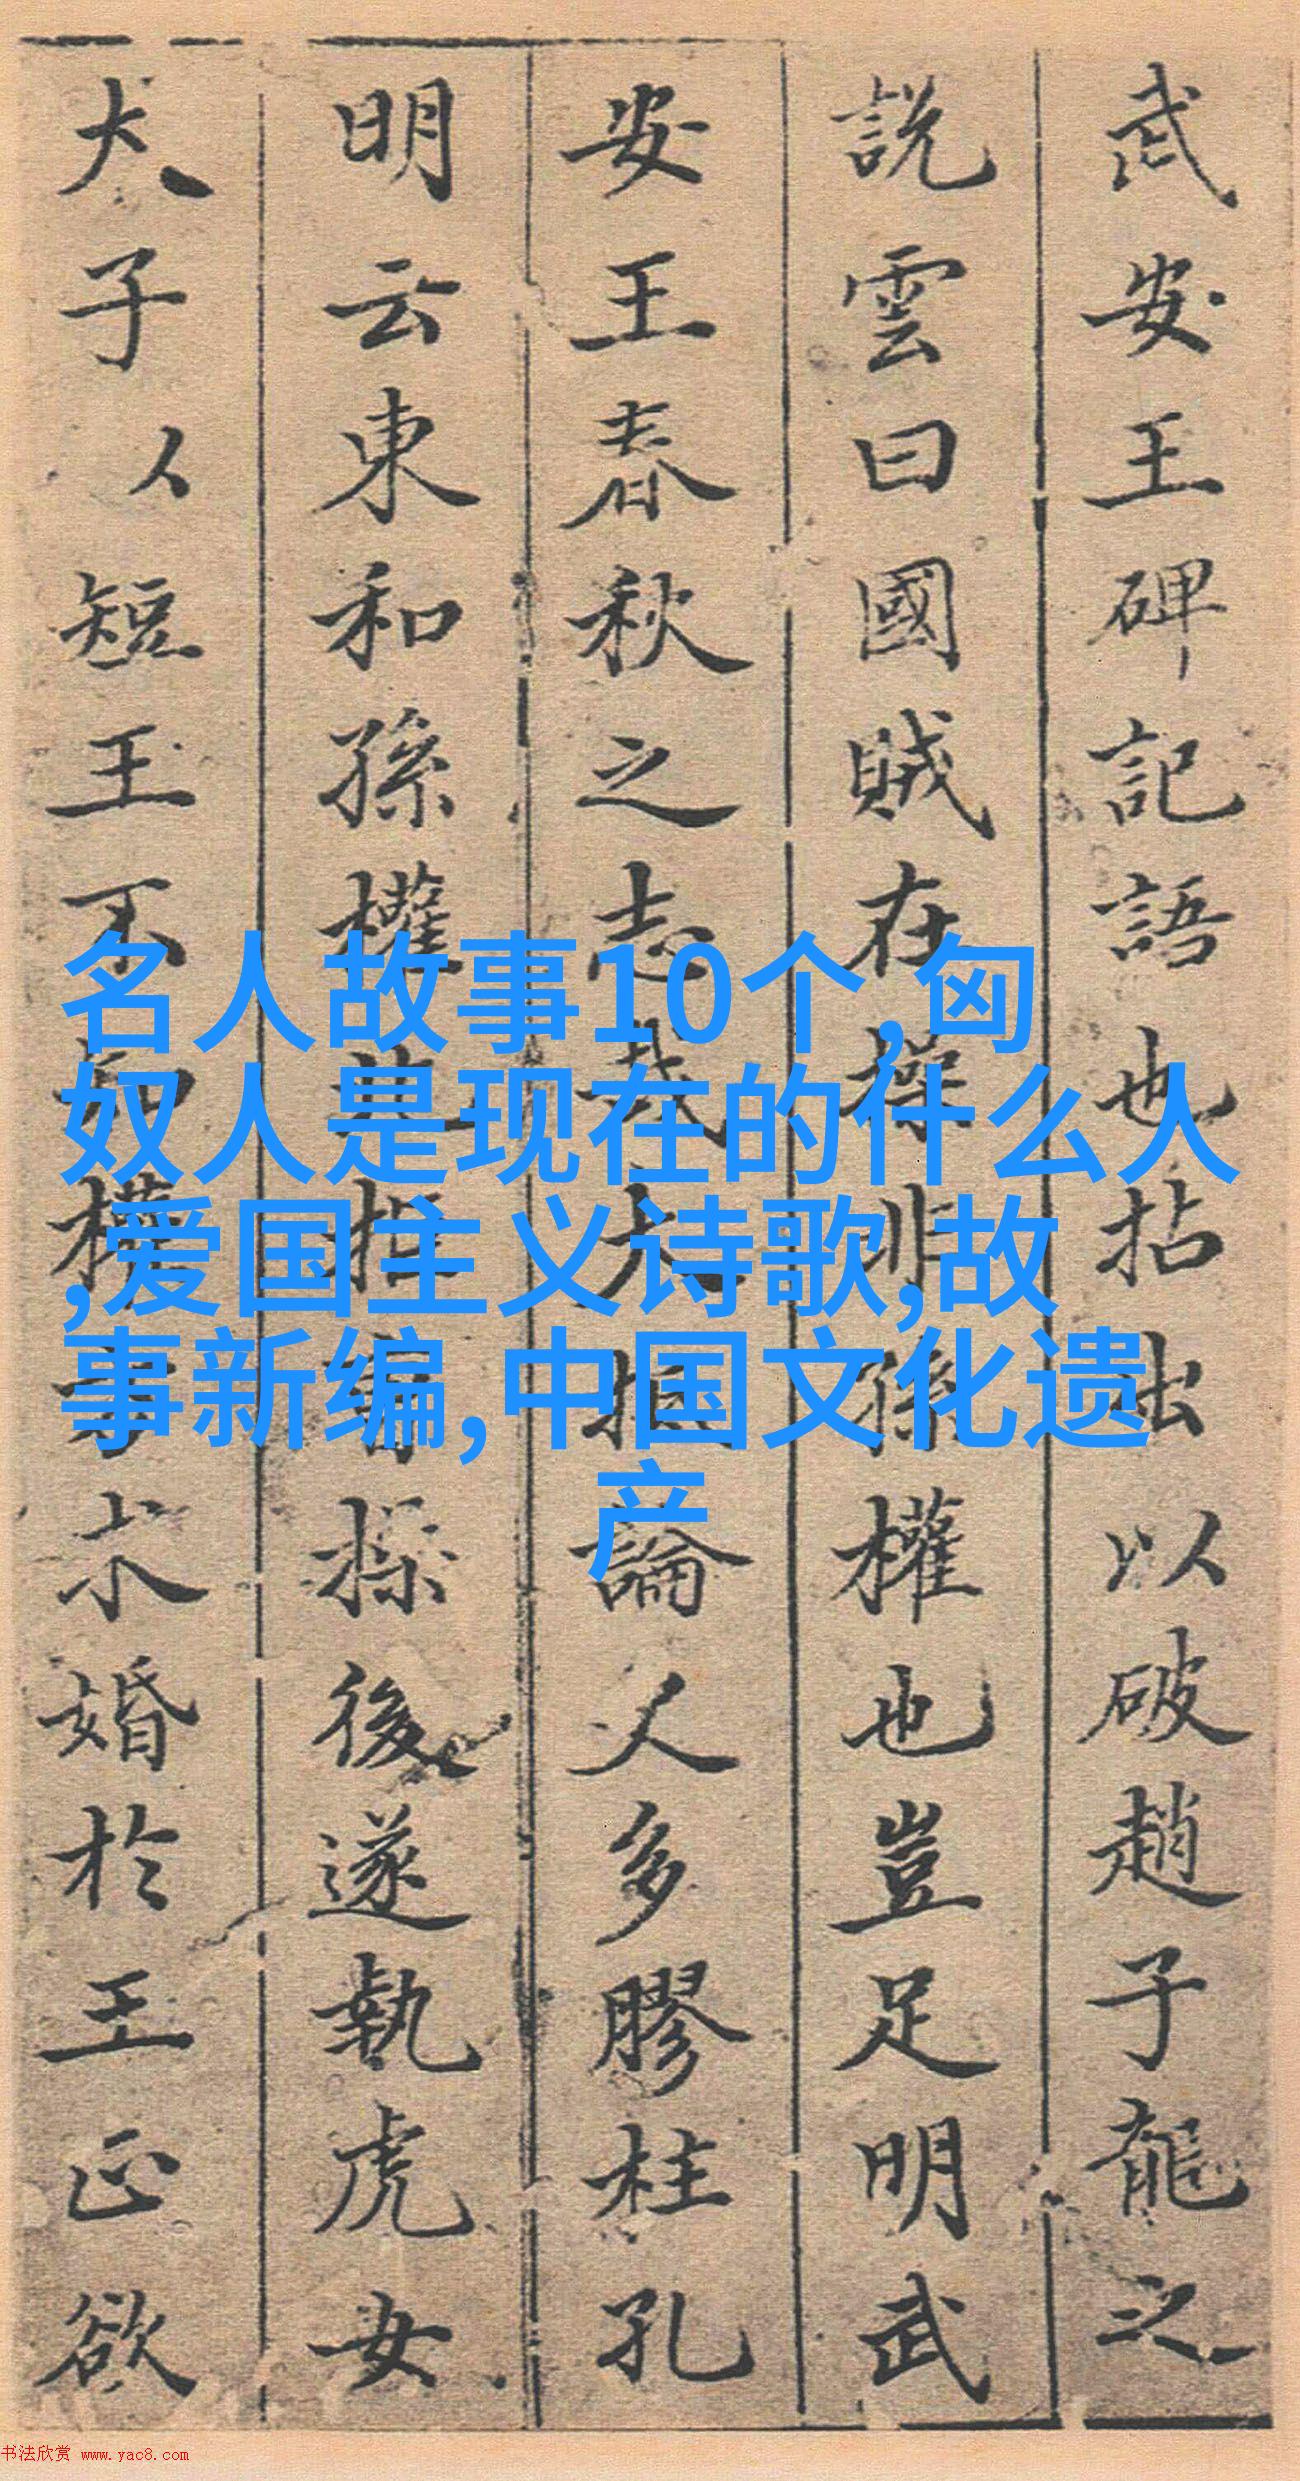 武安王碑記語也拈出以破趙子龍之
說雲曰國賊在操非孫權也豈足明武
安王春秋之志哉大抵論人多膠柱孔
明云東和孫權北拒曹操後遂執虎女
犬子人短王不知權亦求婚於王正欲
名人故事10个,匈
奴人是现在的什么人
,爱国主义诗歌,故
事新编,中国文化遗
产
书法欣赏 www.yac8.com